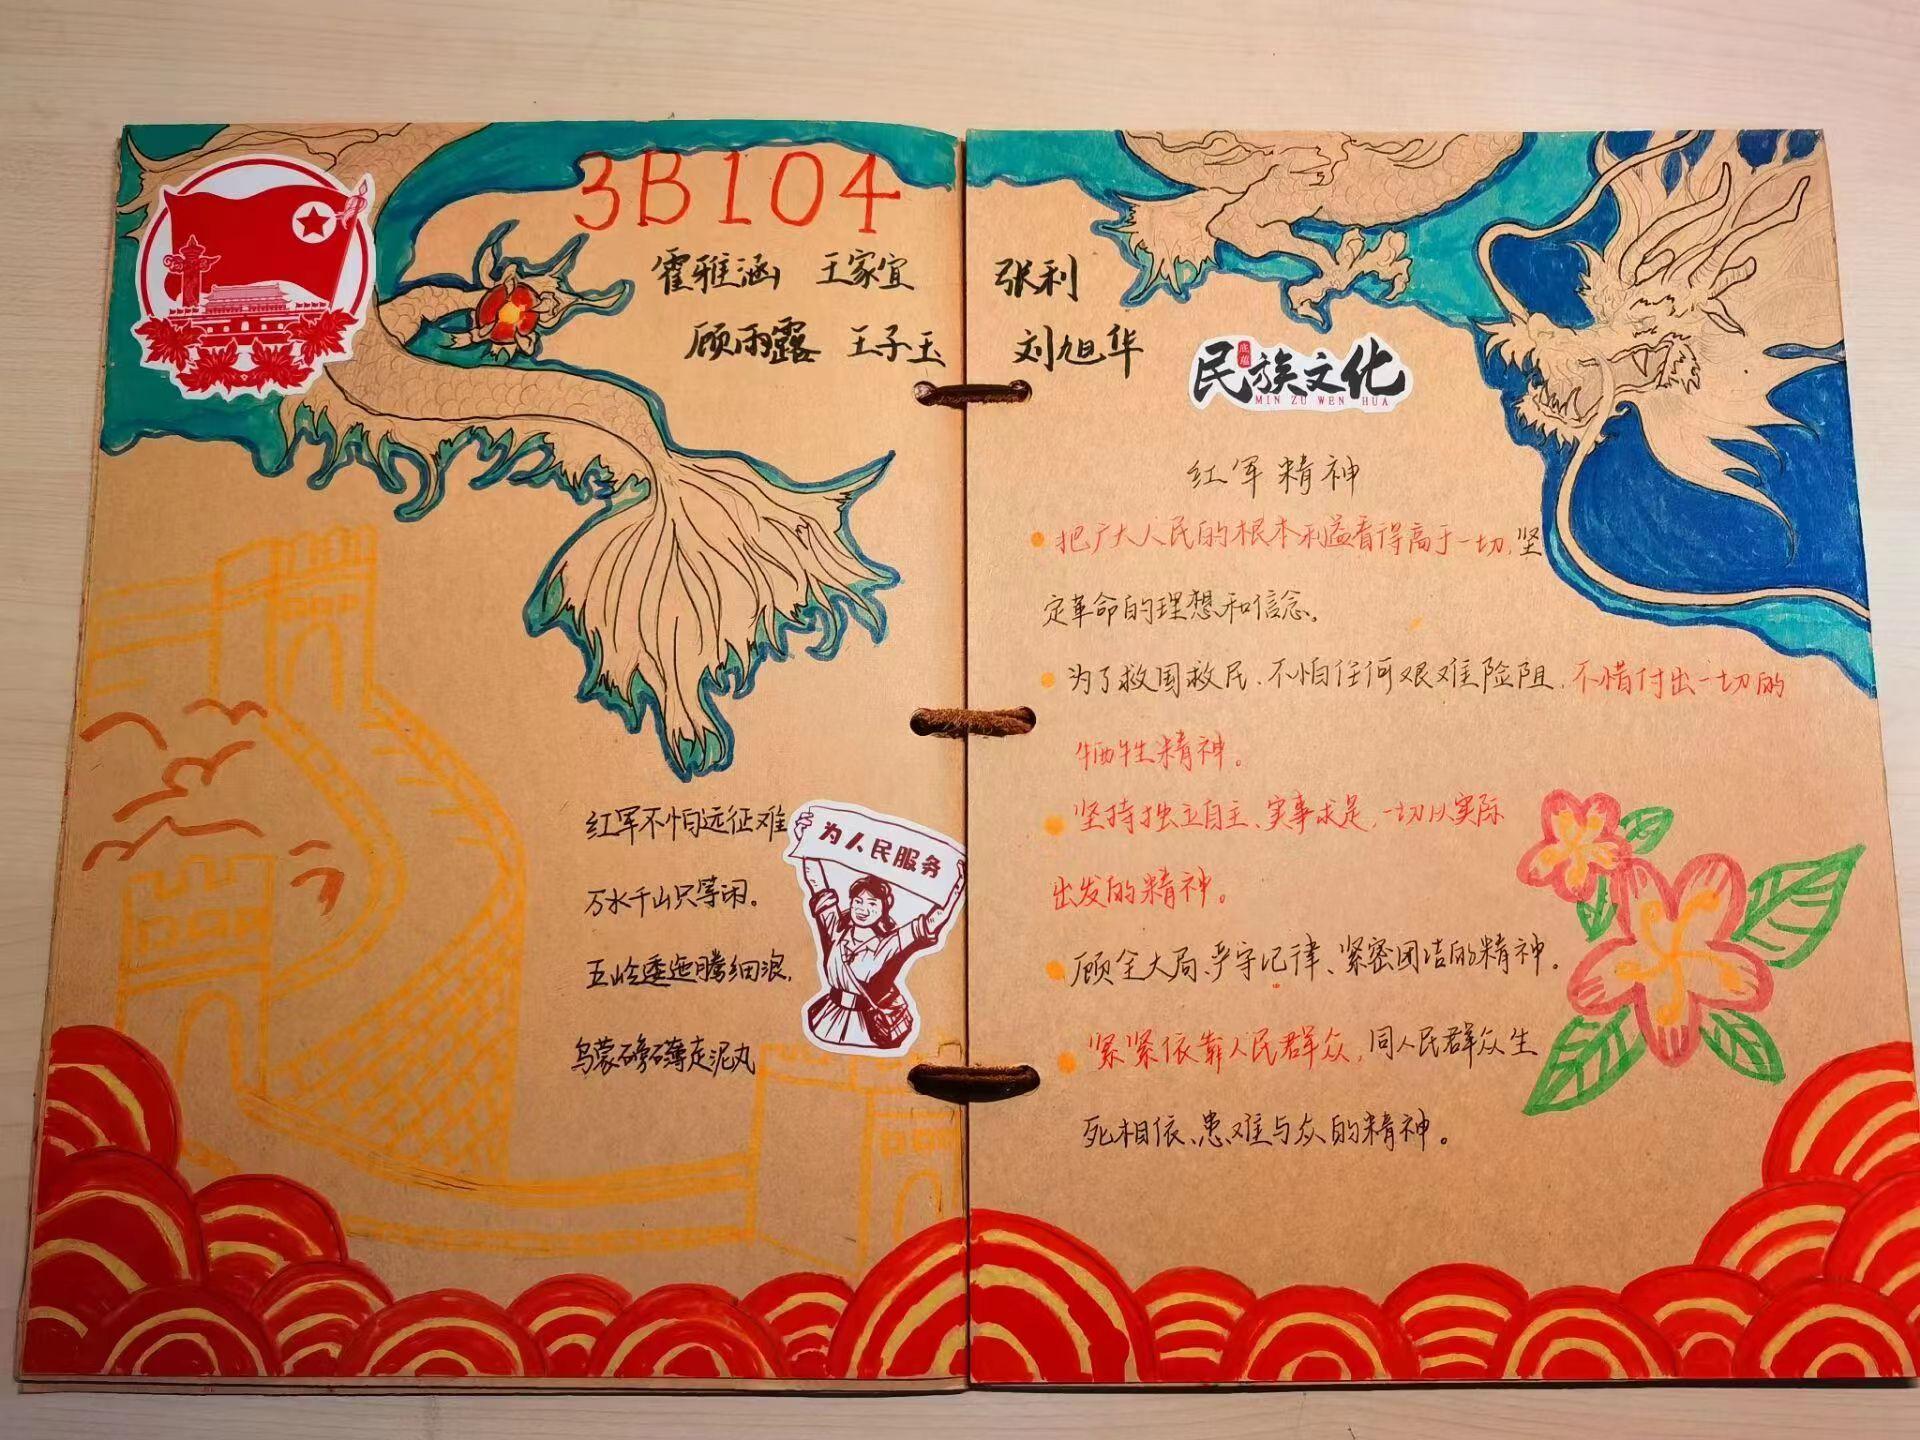 3B104
霍雅涵 王家宜 张利
顾雨露 王子玉 刘旭华
红军不怕远征难
万水千山只等闲。
五岭逶迤腾细浪,
乌蒙磅礴走泥丸
为人民服务
底蕴
民族文化
MIN ZU WEN HUA
红军精神
把广大人民的根本利益看得高于一切,坚
定革命的理想和信念。
为了救国救民、不怕任何艰难险阻,不惜付出一切的
牺牲精神。
坚持独立自主、实事求是,一切从实际
出发的精神。
顾全大局、严守纪律、紧密团结的精神。
紧紧依靠人民群众,同人民群众生
死相依、患难与众的精神。